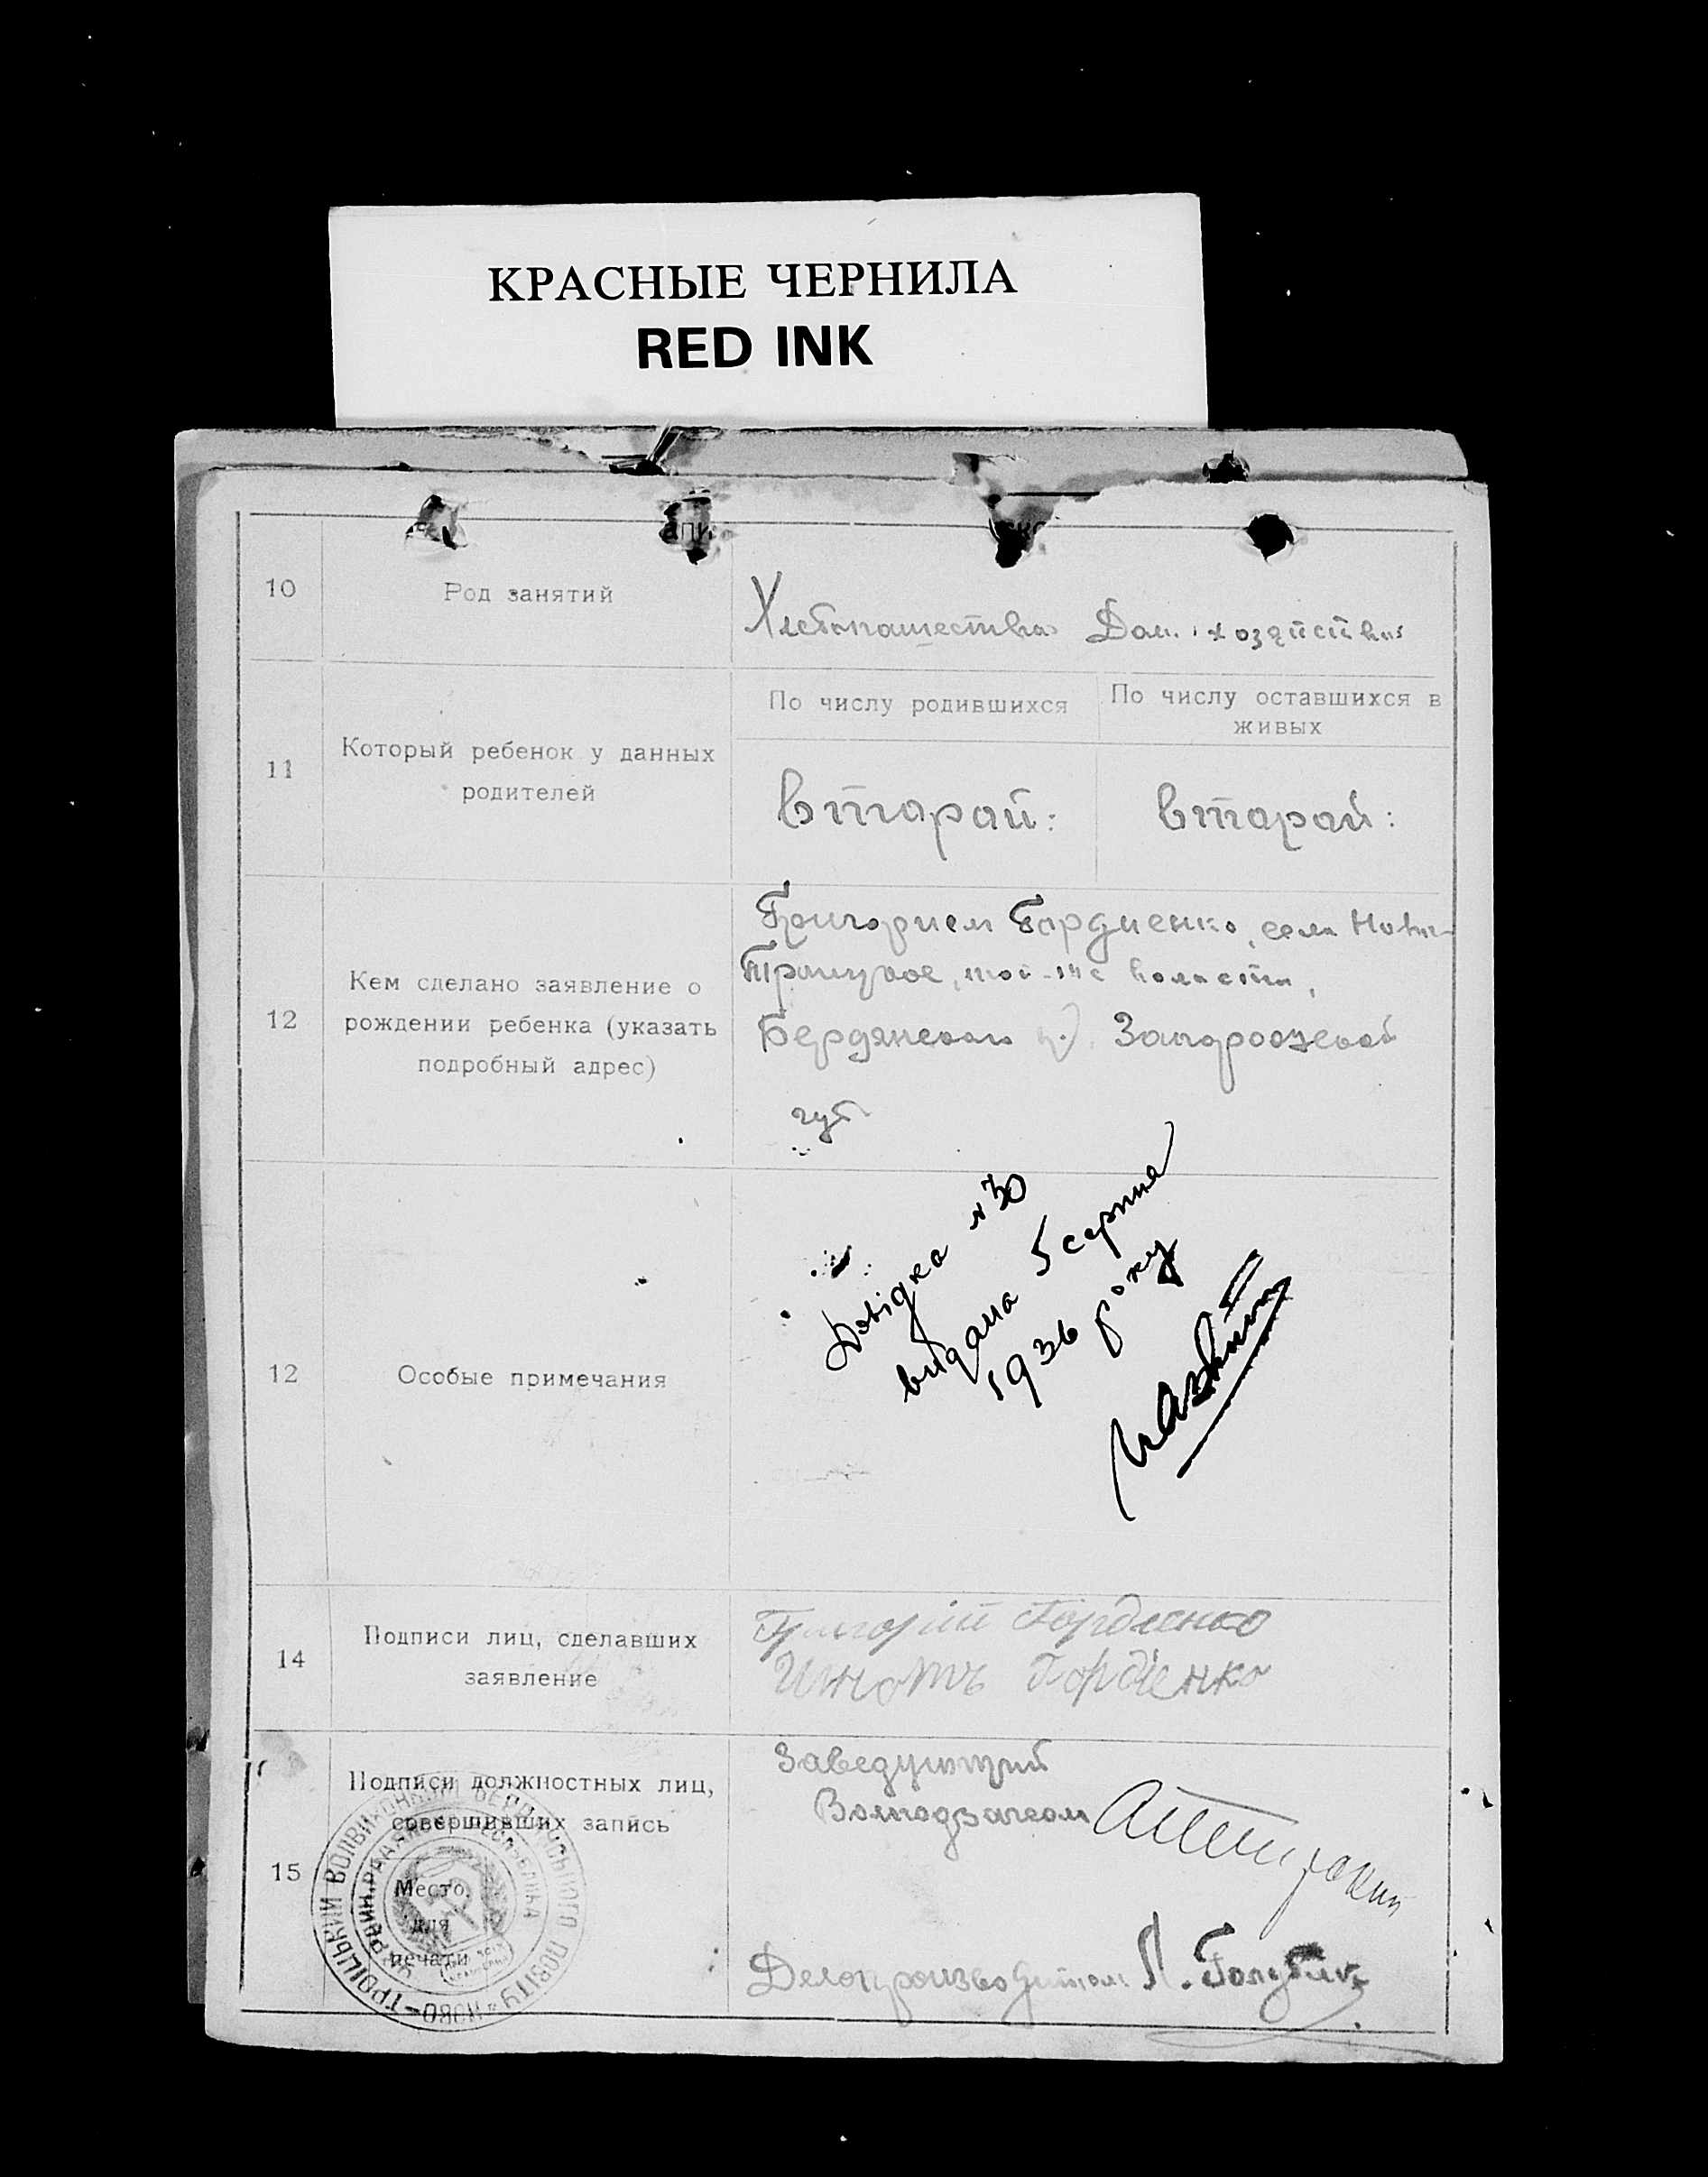 КРАСНЫЕ ЧЕРНИЛА
RED INK
10
Род занятий
Хлебопашество Дом. хозяйство
11
Который ребенок у данных
родителей
По числу родившихся
По числу оставшихся в
живых
второй:
второй:
12
Кем сделано заявление о
рождении ребенка (указать
подробный адрес)
Григорием Гордиенко, села Ново-
Троицкое, той-же волости,
Бердянского у. Запорожской
губ
12
Особые примечания
Довідка №30
видана 5 серпня
1936 року
14
Подписи лиц, сделавших
заявление
Григорій Гордиенко
Гордіенко
15
Подписи должностных лиц,
совершивших запись
Место
для
печати
НОВО-ТРОЇЦЬКИЙ ВОЛВИКОНКОМ БЕРДЯНСЬКОГО ПОВІТУ
Заведующий
Волподзагсом
Делопроизводитель П.